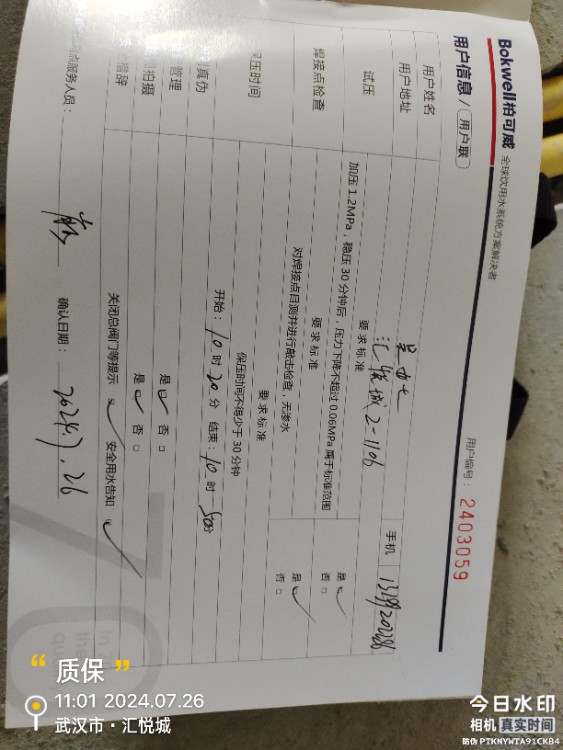 Bokwell柏可威 全球饮用水系统方案解决者
用户信息 / 用户联
用户编号： 2403059
用户姓名
用户地址 汇悦城2-1106
手机
试压
要求标准
加压 1.2MPa，稳压 30 分钟后，压力下降不超过 0.06MPa 属于标准范围
是 ✓
否 □
焊接点检查
要求标准
对焊接点目测并进行敲击检查，无渗水
是 ✓
否 □
保压时间
要求标准
保压时间不得少于 30 分钟
开始：10 时 20 分 结束：10 时 50分
真伪
管理
是 ✓ 否 □
拍摄
是 ✓ 否 □
关闭总阀门等提示 ✓ 安全用水告知 ✓
点服务人员：
确认日期： 2024.7.26
“ 质保 ”
11:01 2024.07.26
武汉市·汇悦城
今日水印
相机 真实时间
防伪 PTKNYWTA91CKB4